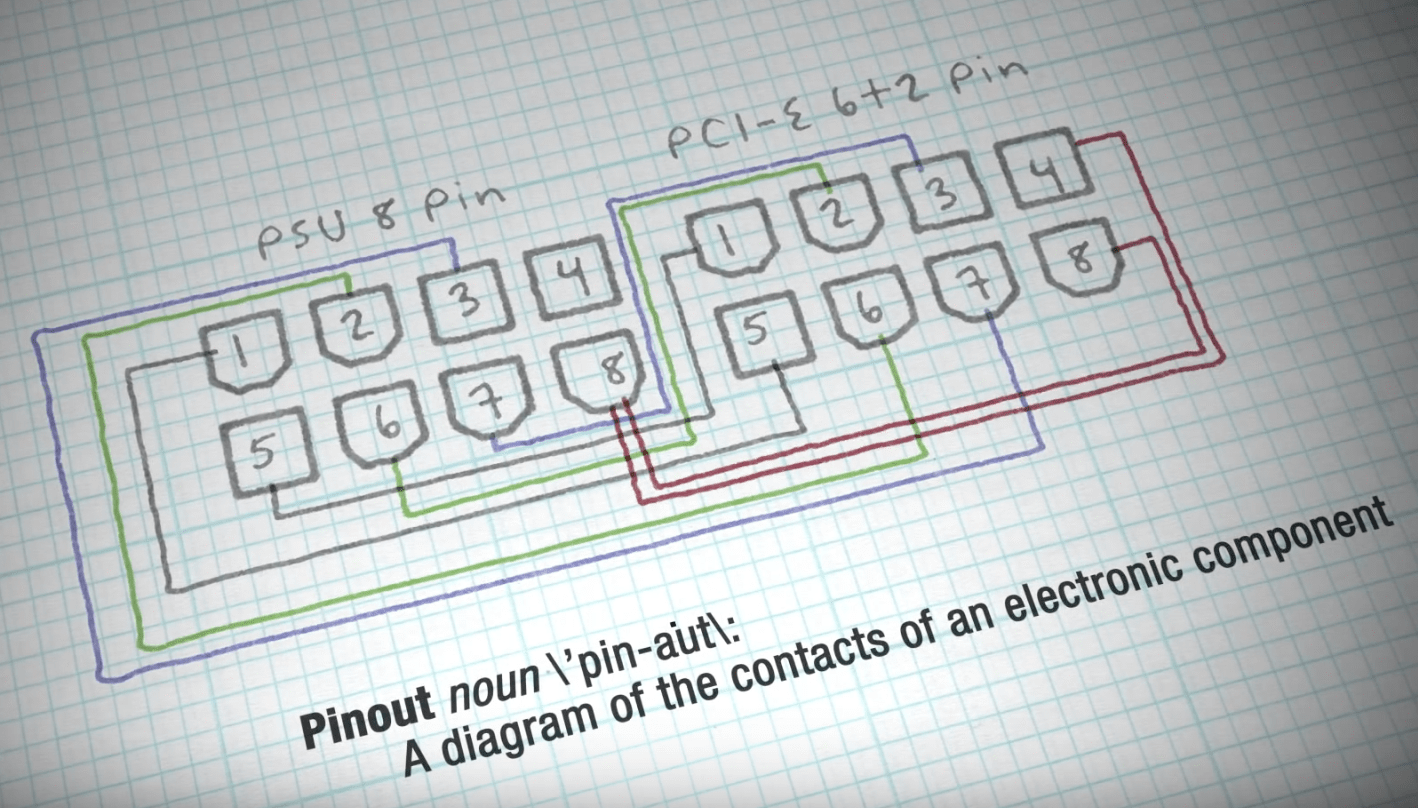 PCI-E 6+2 Pin
PSU 8 Pin
1 2 3 4
5 6 7 8
1 2 3 4
5 6 7 8
Pinout noun \'pin-aut\:
A diagram of the contacts of an electronic component